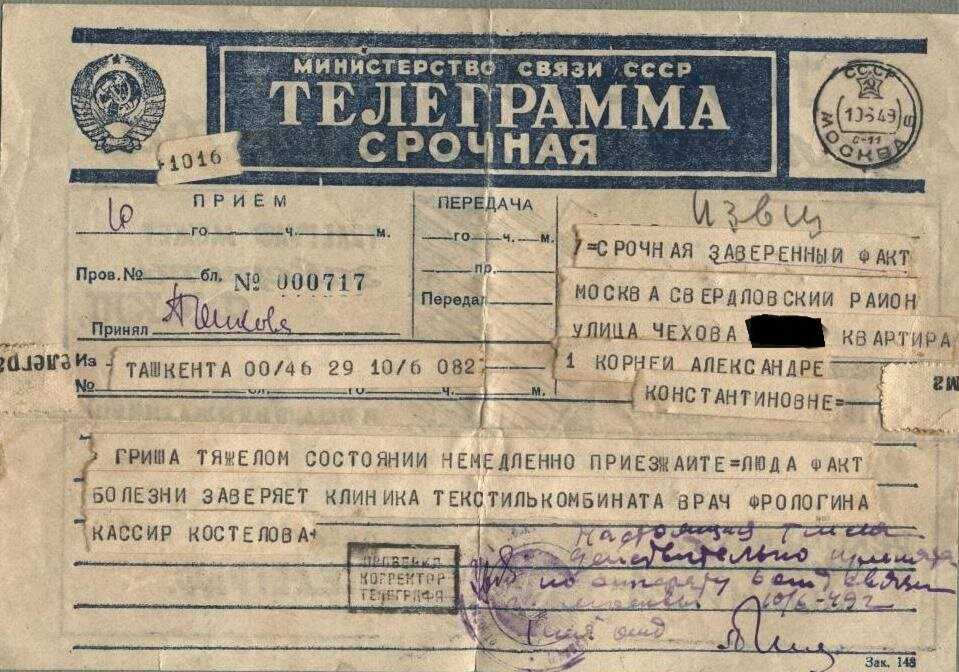 МИНИСТЕРСТВО СВЯЗИ СССР
ТЕЛЕГРАММА
СРОЧНАЯ
СССР
10 6 49
МОСКВА
1016
ПРИЕМ
10
го ч. м.
Пров. № бл. № 000717
Принял
ПЕРЕДАЧА
го ч. м.
пр.
Передал
=СРОЧНАЯ ЗАВЕРЕННЫЙ ФАКТ
МОСКВА СВЕРДЛОВСКИЙ РАЙОН
УЛИЦА ЧЕХОВА КВАРТИРА
1 КОРНЕЙ АЛЕКСАНДРЕ
КОНСТАНТИНОВНЕ=
Из ТАШКЕНТА 00/46 29 10/6 082
№ бл. го ч. м.
ГРИША ТЯЖЕЛОМ СОСТОЯНИИ НЕМЕДЛЕННО ПРИЕЗЖАЙТЕ=ЛЮДА ФАКТ
БОЛЕЗНИ ЗАВЕРЯЕТ КЛИНИКА ТЕКСТИЛЬКОМБИНАТА ВРАЧ ФРОЛОГИНА
КАССИР КОСТЕЛОВА
ПРОВЕРИЛ
КОРРЕКТОР
ТЕЛЕГРАФА
Настоящая
действительно принята
по аппарату
Москвы 10/6-49г
Зак. 148